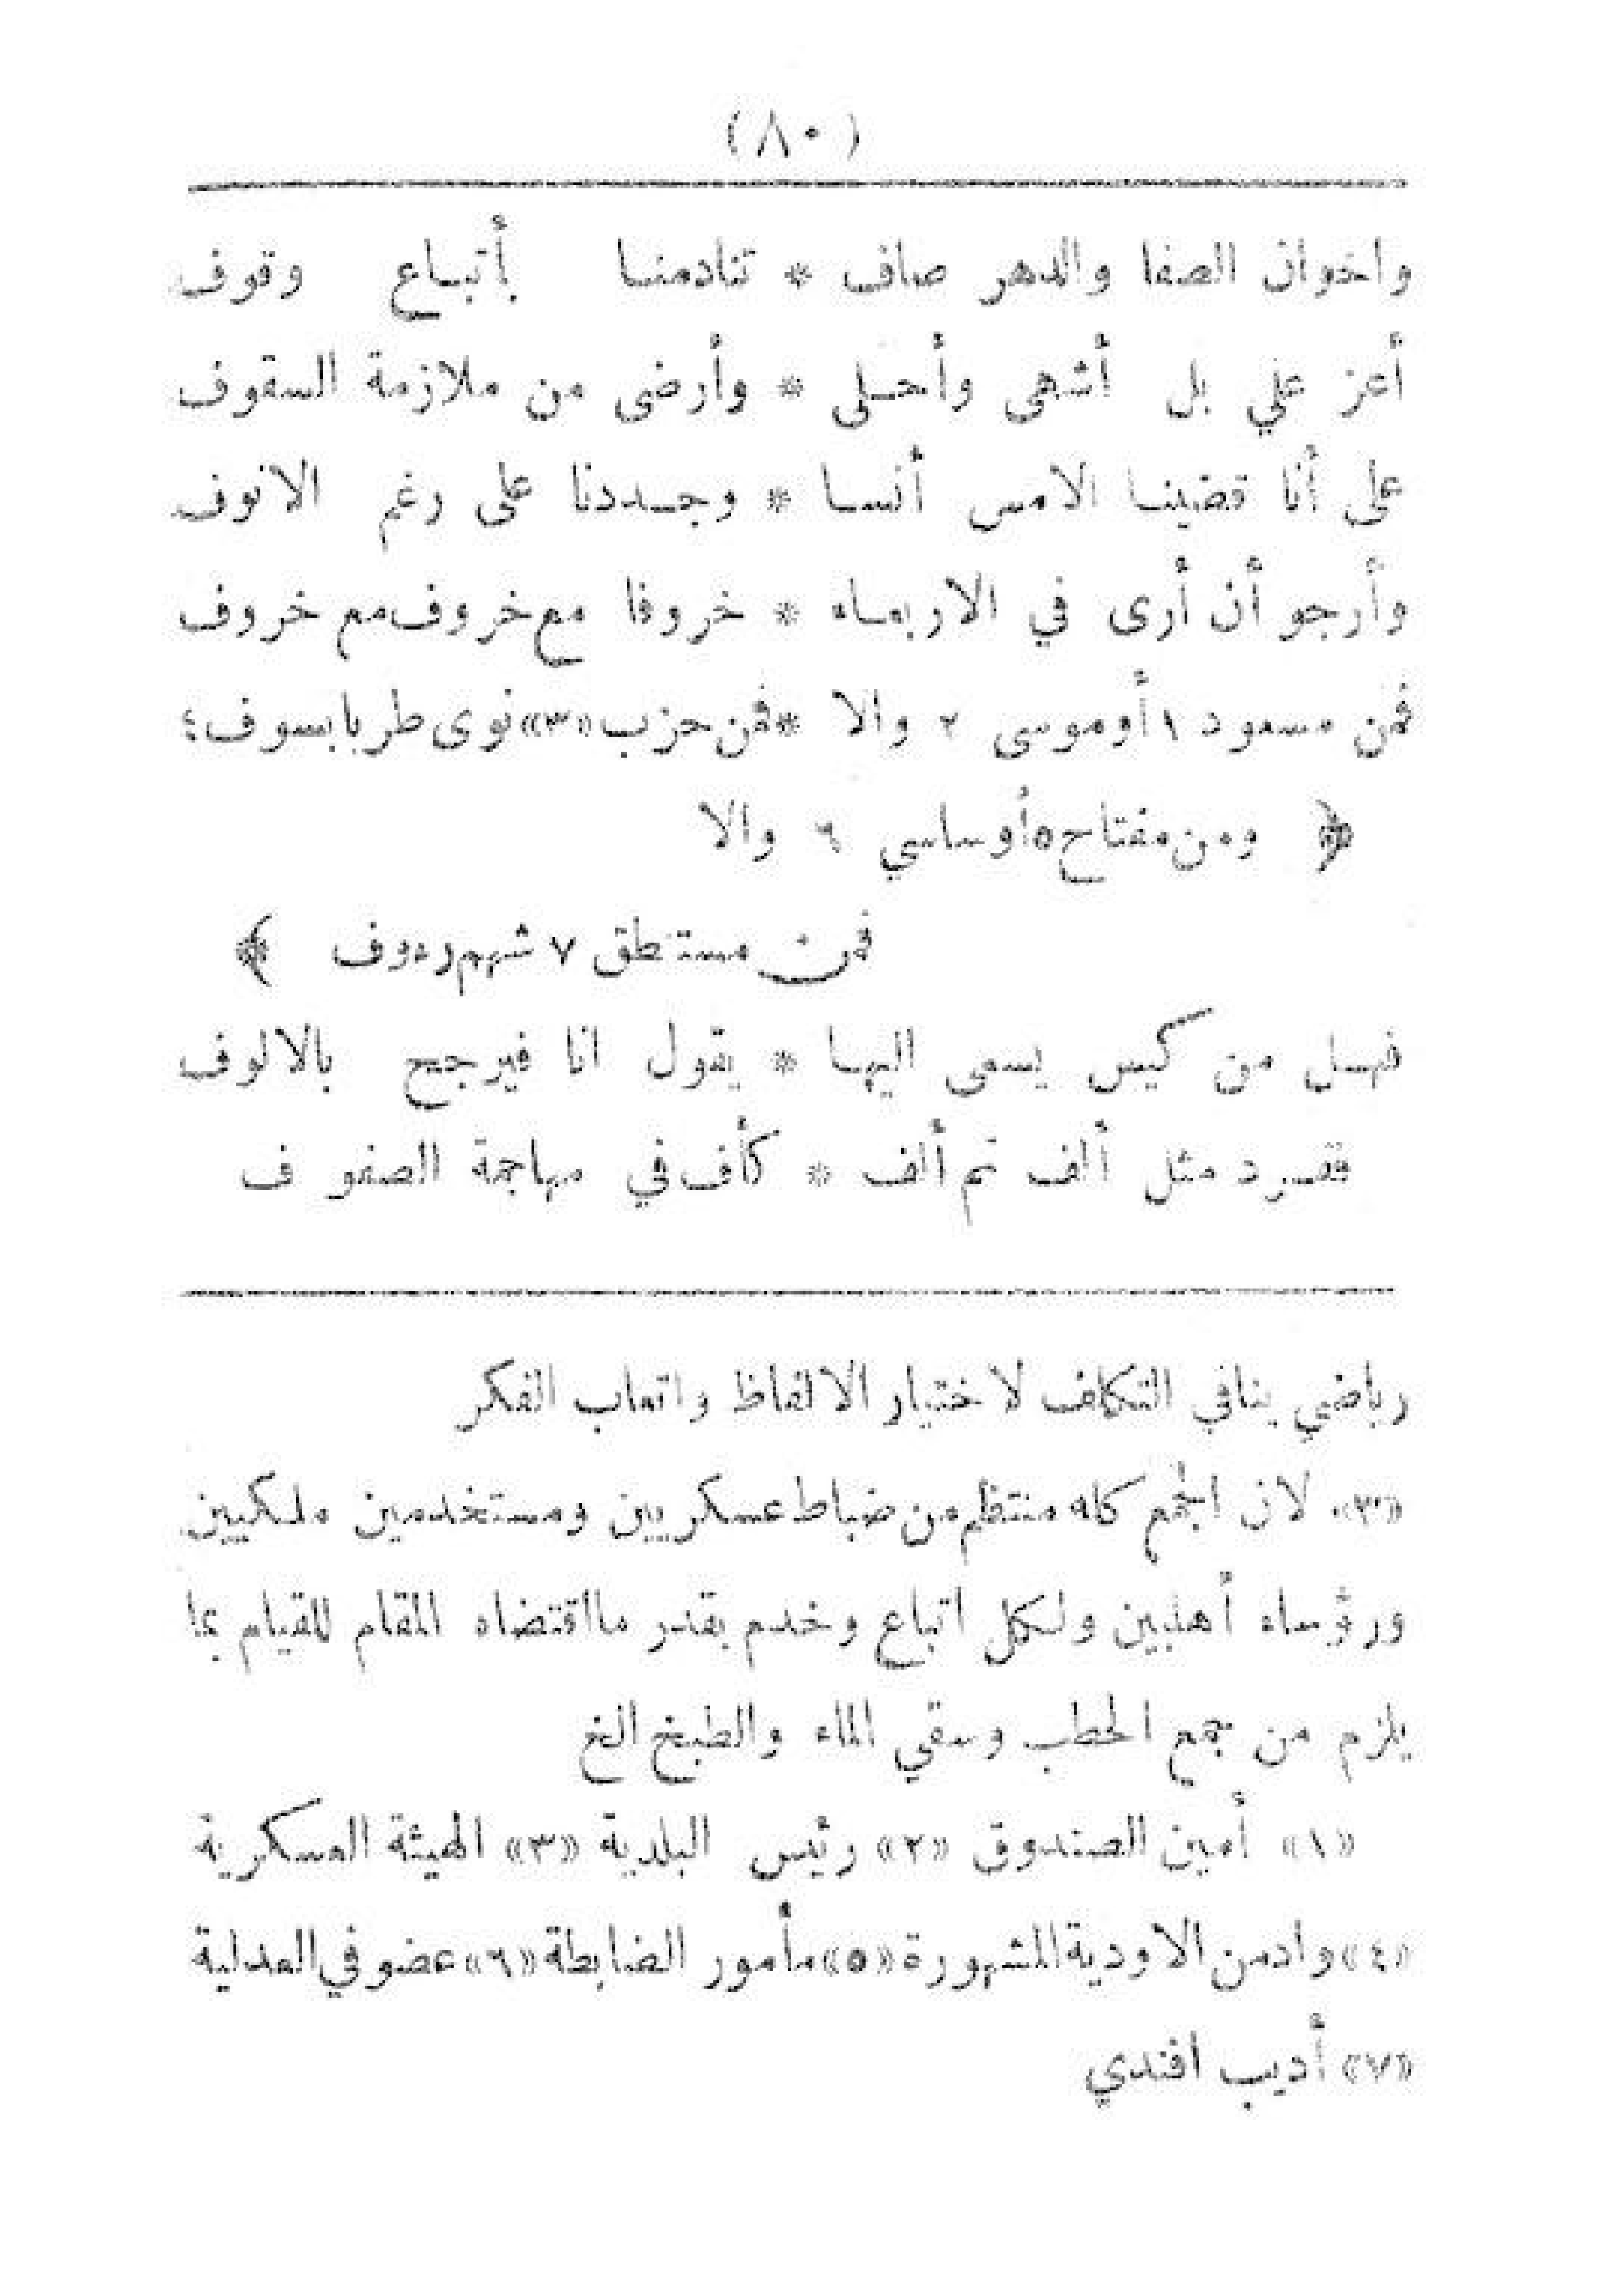 (٨٠)
واخوان الصفا والدهر صاف * تنادمنا بأتباع وقوف
أعز علي بل أشهى وأحلى * وأرضى من ملازمة السقوف
على أنا قضينا الامس أنسا * وجددنا على رغم الانوف
وأرجو أن أرى في الاربعاء * خروفا مع خروف مع خروف
فمن مسعود ١ أو موسى ٢ والا * فمن حزب «٣» نوى طربا بسوف ٤
﴿ ومن مفتاح ٥ أوساسي ٦ والا
فمن مستنطق ٧ شهم رءوف ﴾
فهل من كيس يسعى اليها * يقول انا فيرجح بالالوف
ففرد مثل ألف ثم ألف * كأف في مهاجمة الصفوف
رياضي ينافي التكلف لاختيار الالفاظ واتعاب الفكر
«٣» لان الجمع كله منتظم من ضباط عسكريين ومستخدمين ملكيين
ورؤساء أهليين ولكل اتباع وخدم بقدر ما اقتضاه المقام للقيام بما
يلزم من جمع الحطب وسقي الماء والطبخ الخ
«١» أمين الصندوق «٢» رئيس البلدية «٣» الهيئة العسكرية
«٤» واد من الاودية المشهورة «٥» مأمور الضابطة «٦» عضو في العدلية
«٧» أديب افندي